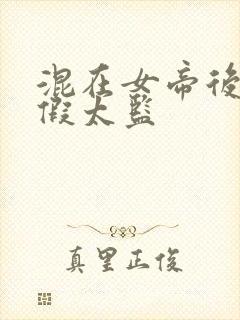 混在女帝後
假太監
真里正俊